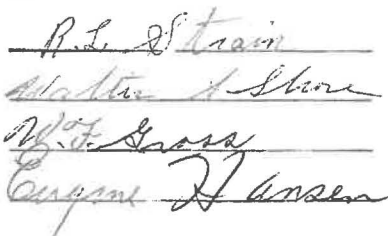 R.L. Strain
Walter A Shore
W.F. Gross
Eugene Hansen